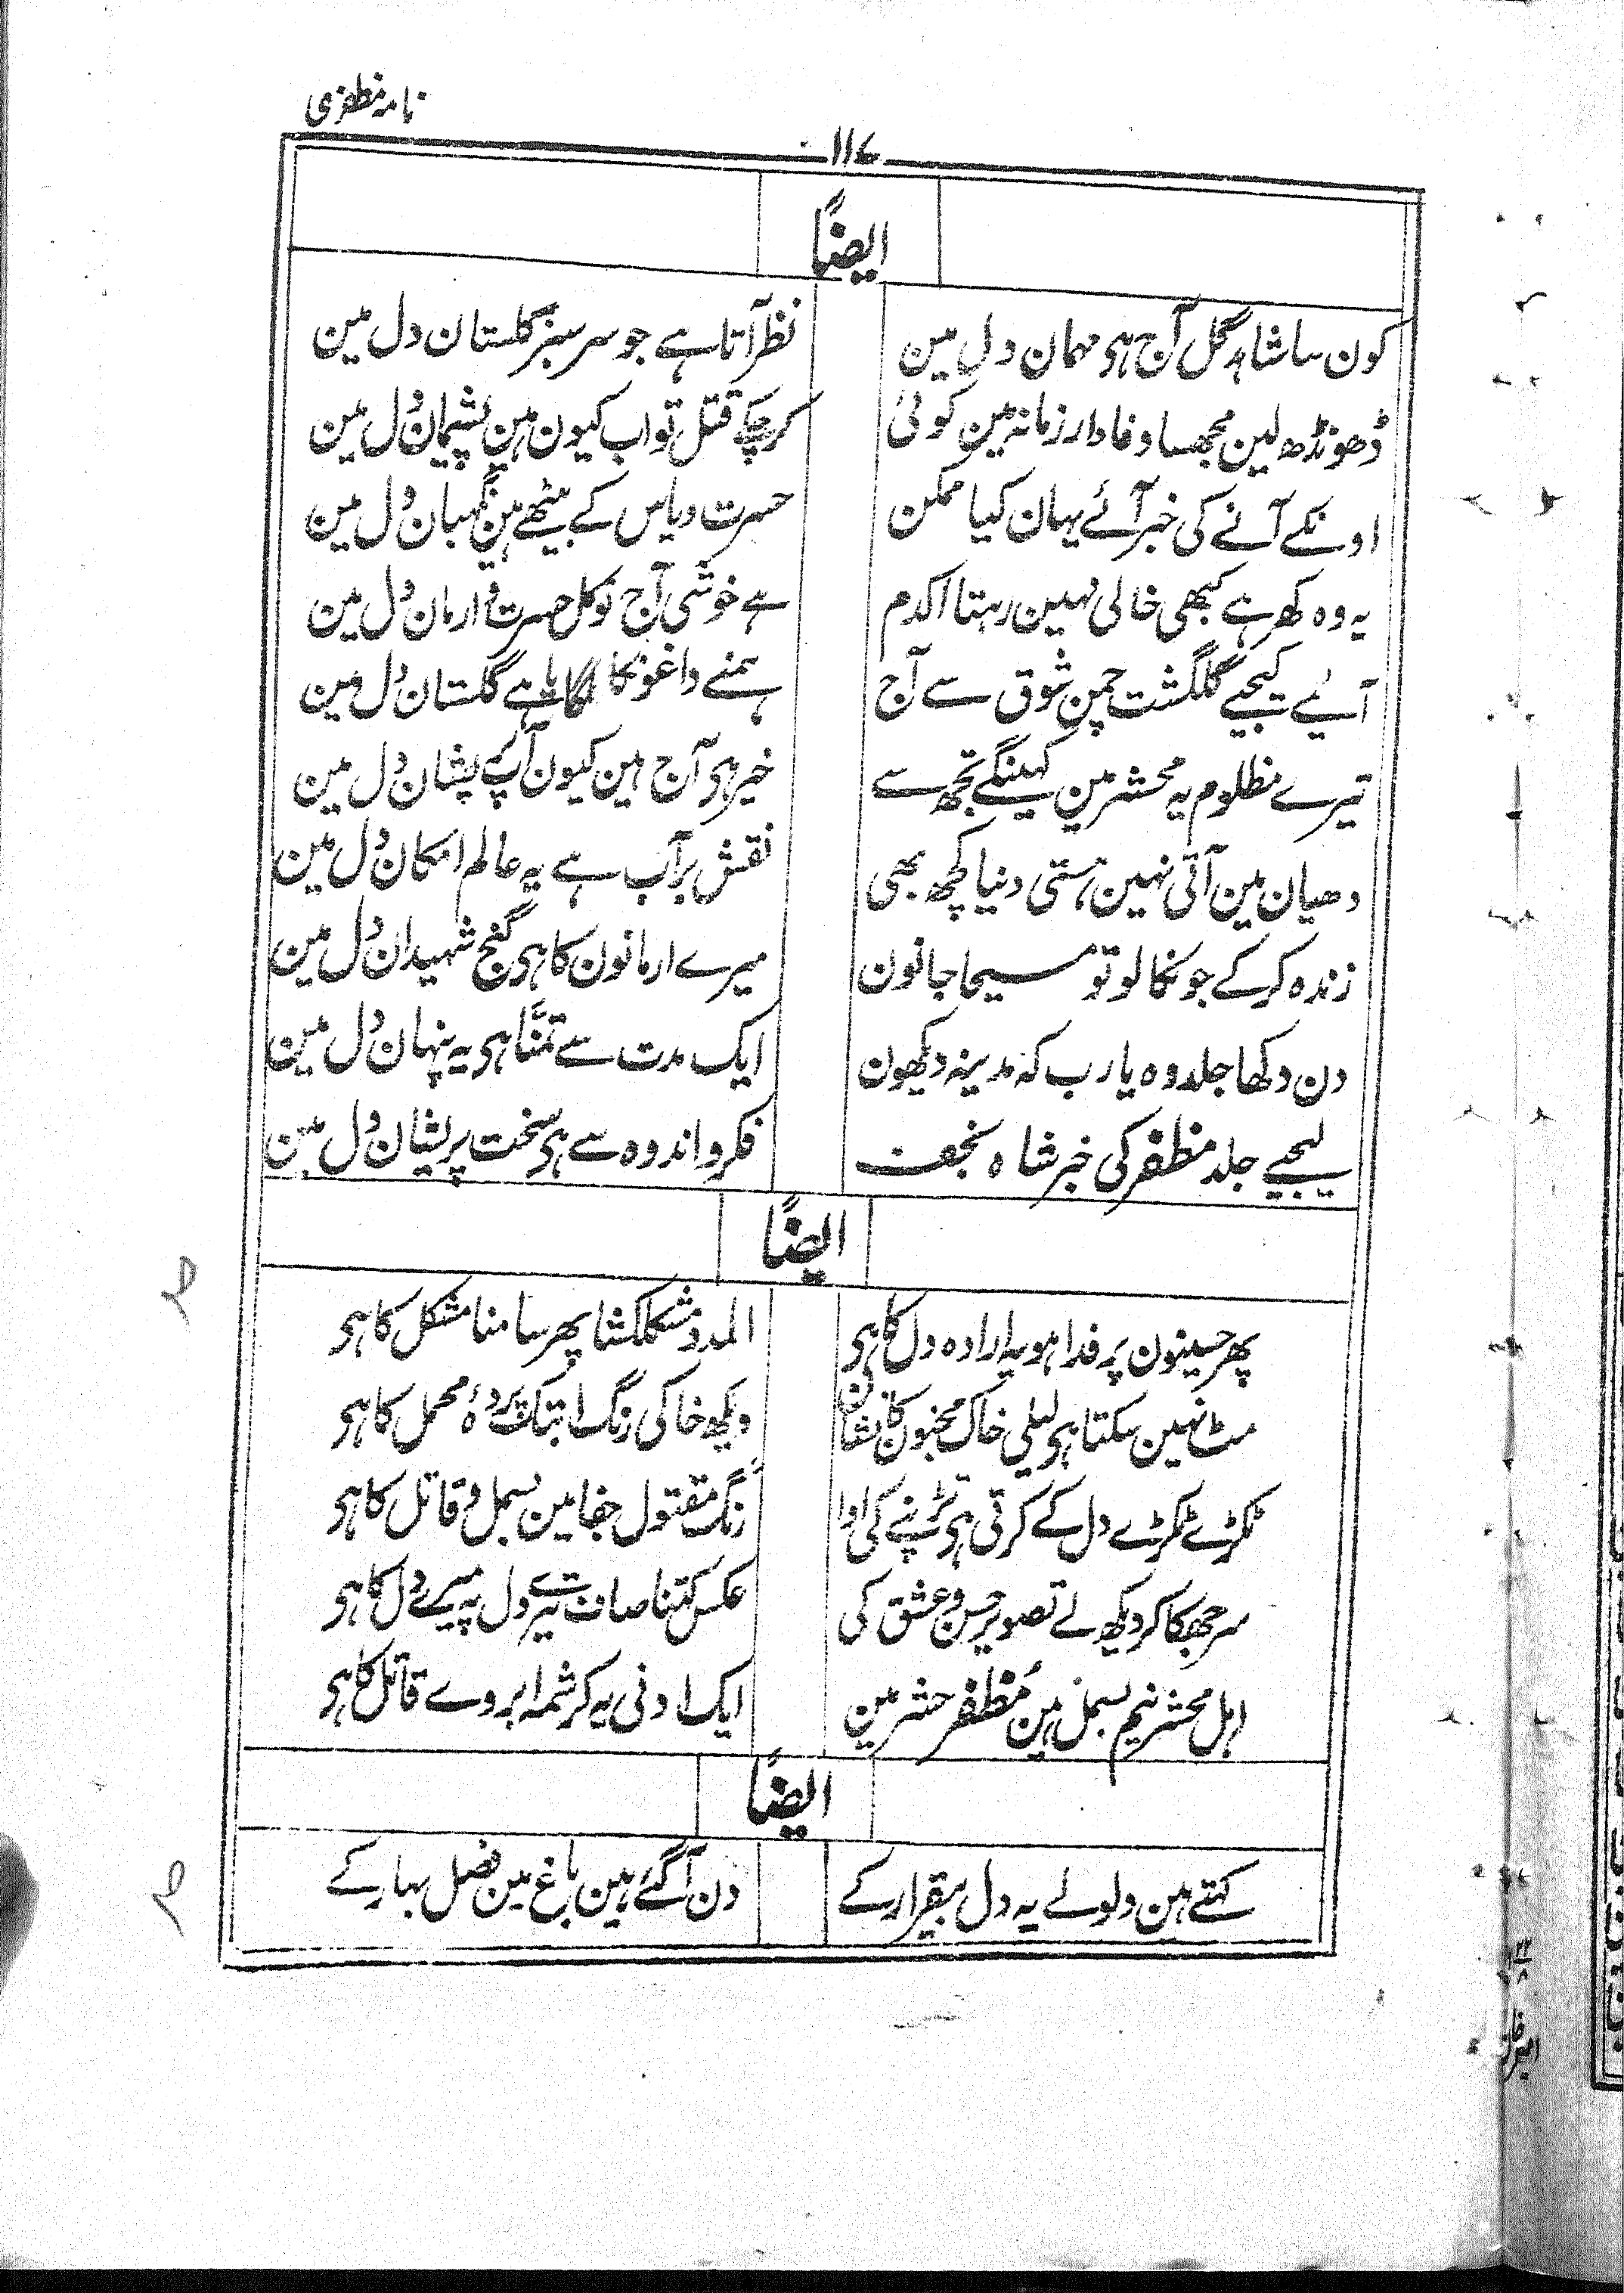 نامہ مظفری
۱۱۷
ایضاً
کون سا شاہد گل آج ہی مہمان دل مین
نظر آتا ہے جو سر سبز گلستان دل مین
ڈھونڈھ لین مجھسا وفادار زمانہ مین کوئی
کر چکے قتل تو اب کیون ہین پشیمان دل مین
اونکے آنے کی خبر آئے یہان کیا ممکن
حسرت و یاس کے بیٹھے ہین نگہبان دل مین
یہ وہ گھر ہے کبھی خالی نہین رہتا اکدم
ہے خوشی آج تو کل حسرت و ارمان دل مین
آئیے کیجیے گلگشت چمن شوق سے آج
ہمنے داغونکا لگایا ہے گلستان دل مین
تیرے مظلوم یہ محشر مین کہینگے تجھ سے
خیر ہی آج ہین کیون آپ پشان دل مین
دھیان مین آتی نہین ہستی دنیا کچھ بھی
نقش بر آب ہے یہ عالم امکان دل مین
زندہ کر کے جو نکالو تو مسیحا جانون
میرے ارمانون کا ہی گنج شہیدان دل مین
دن دکھا جلد وہ یا رب کہ مدینہ دیکھون
ایک مدت سے تمنّا ہی یہ پنہان دل مین
لیجیے جلد مظفر کی خبر شاہ نجف
فکر و اندوہ سے ہی سخت پریشان دل مین
ایضاً
پھر حسینون پہ فدا ہو یہ ارادہ دل کا ہی
المدد مشکلکشا پھر سامنا مشکل کا ہی
مٹ نہین سکتا ہی لیلی خاک مجنون کا نشان
دیکھ خاکی رنگ ابتک پردۂ محمل کا ہی
ٹکڑے ٹکڑے دل کے کرتی ہی تڑپنے کی ادا
رنگ مقتول جفا مین بسمل و قاتل کا ہی
سر جھکا کر دیکھ لے تصویر حسن و عشق کی
عکس کتنا صاف تیرے دل پہ میرے دل کا ہی
اہل محشر نیم بسمل ہین مظفر حشر مین
ایک ادنی یہ کرشمہ ابروے قاتل کا ہی
ایضاً
کہتے ہین ولولے یہ دل بیقرار کے
دن آگئے ہین باغ مین فصل بہار کے